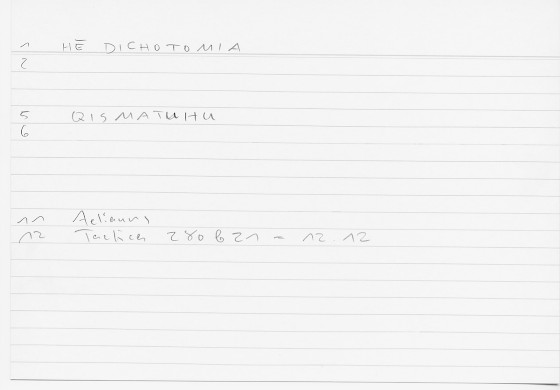 1 HĒ DICHOTOMIA
2
5 QISMATUHU
6
11 Aelianus
12 Tactica 280 b 21 - 12.12